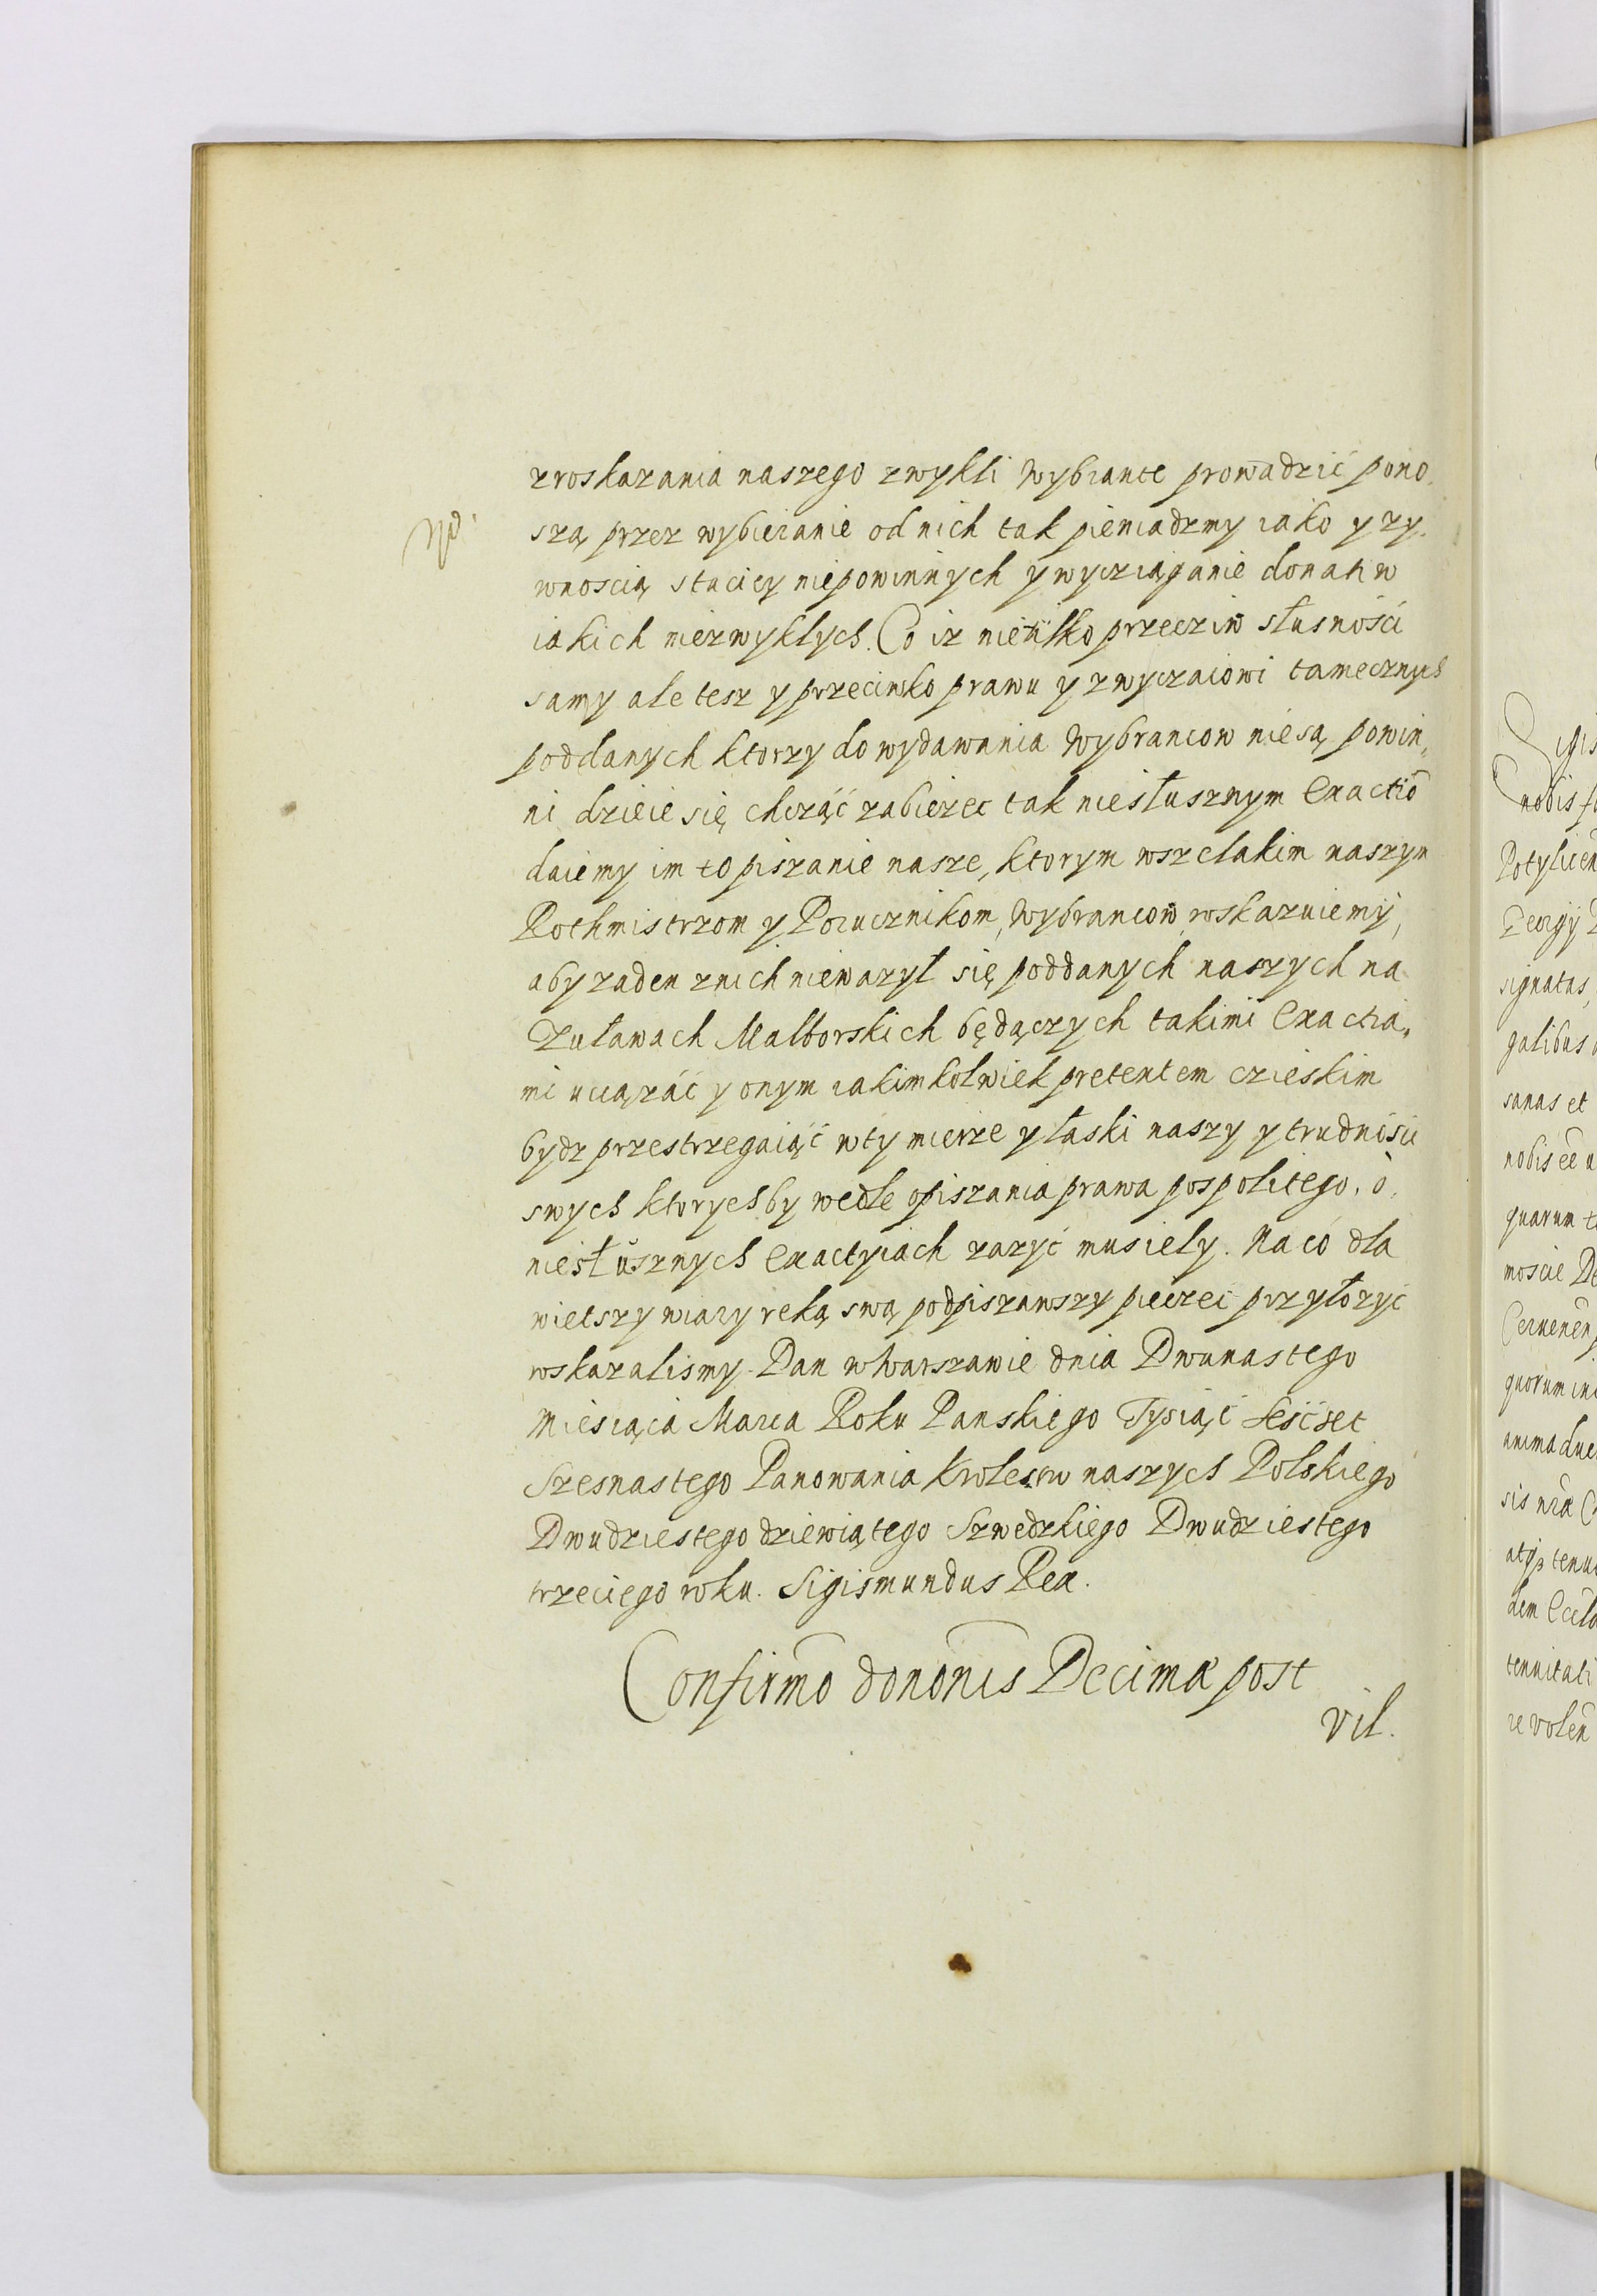 zroskazania naszego zwykli wybrance prowadzić pono,
szą przez wybieranie od nich tak pieniadzmy iako y zy,
wnoscią stacicy niepowinnych y wycziąganie donatiw
iakich niezwykłych. Co iz nietilko przecziw słusnosci
samy ale tesz y przeciwko prawu y zwyczaiowi tamecznych
poddanych ktorzy do wydawania Wybrancow nie są powin,
ni dzieie się chcząc zabiezec tak niesłusznym Exactiō
daiemy im to piszanie nasze, ktorym wszelakim naszym
Rothmistrzom y Porucznikom, Wybrancow roskazuiemy,
aby zaden znich niewazył się poddanych naszych na
Zuławach Malborskich będączych takimi Exactia,
mi uciązać y onym iakimkolwiek pretextem czieskim
bydz przestrzegaiąc w ty mierze y łaski naszy y trudnosci
swych ktorychby wedle opiszania prawa pospolitego, o
niesłusznych exactyiach zazyc musiely. Na co dla
wietszy wiary reką swą podpiszawszy pieczec przyłozyc
roskazalismy. Dan w Warszawie dnia Dwunastego
Miesiąca Marca Roku Panskiego Tysiąc sescset
Szesnastego Panowania Krolestw naszych Polskiego
Dwudziestego dziewiątego Szwedzkiego Dwudziestego
trzeciego roku. Sigismundus Rex.
Confirmō donōnis Decimæ post
vil.
Sigis
nobis
Potylicen
Georgÿ
signatas,
galibus
sanas et
nobis eē
quarum
moscie
quorum
animadue
sis nrā
atqȝ
dem
tenuitati
re volen